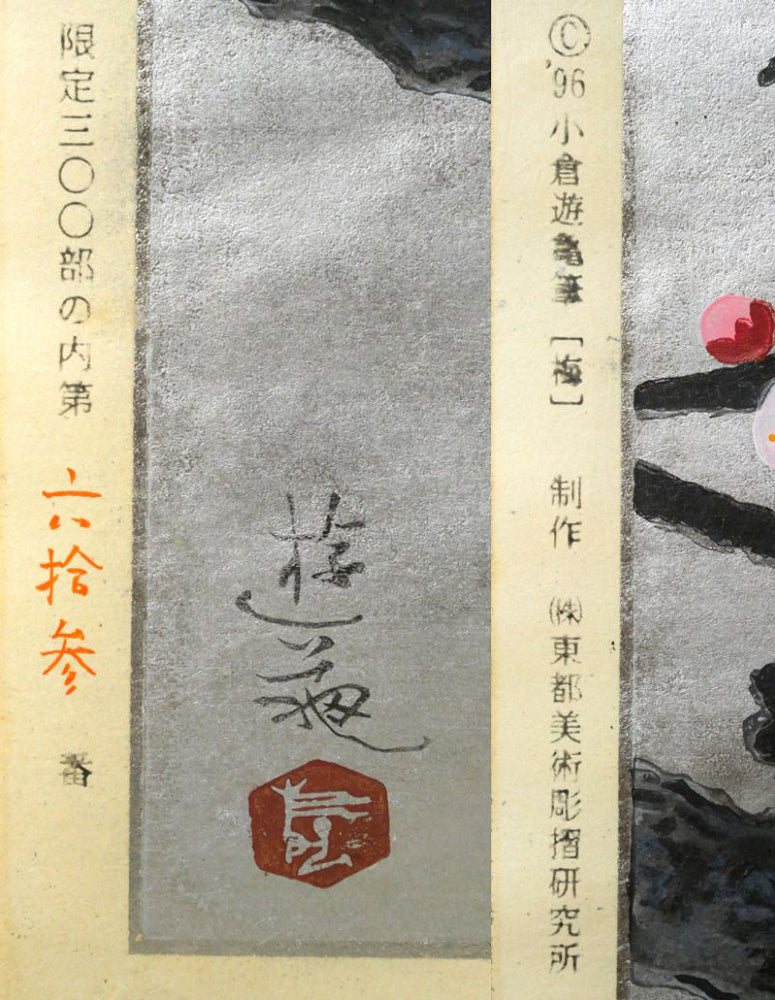 限定三〇〇部の内第 六拾参 番
遊亀
© '96 小倉遊亀筆 [梅] 制作 ㈱東都美術彫摺研究所